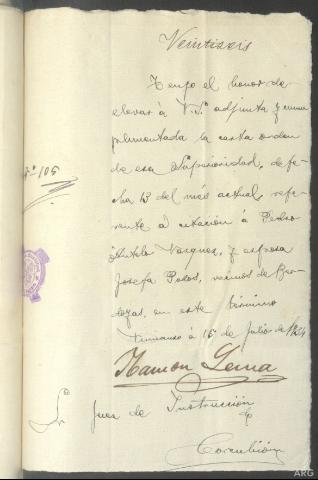 Veintiseis
Tengo el honor de
elevar á V.S. adjunta y cum
plimentada la carta orden
de esa Superioridad, de fe
Nº 105
cha 13 del més actual, refe
rente á citación á Pedro
Antelo Vazquez, y esposa
Josefa Posos, vecinos de
en este término
á 15 de Julio de 1924
Ramon Lema
Sr. Juez de Instrucción de
Corcubión
ARG